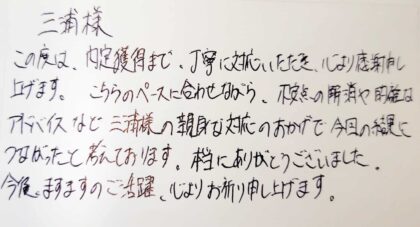 三浦様
この度は、内定獲得まで、丁寧に対応いただき、心より感謝申し
上げます。こちらのペースに合わせながら、不安点の解消や的確な
アドバイスなど三浦様の親身な対応のおかげで今回の結果に
つながったと考えております。本当にありがとうございました。
今後、ますますのご活躍、心よりお祈り申し上げます。